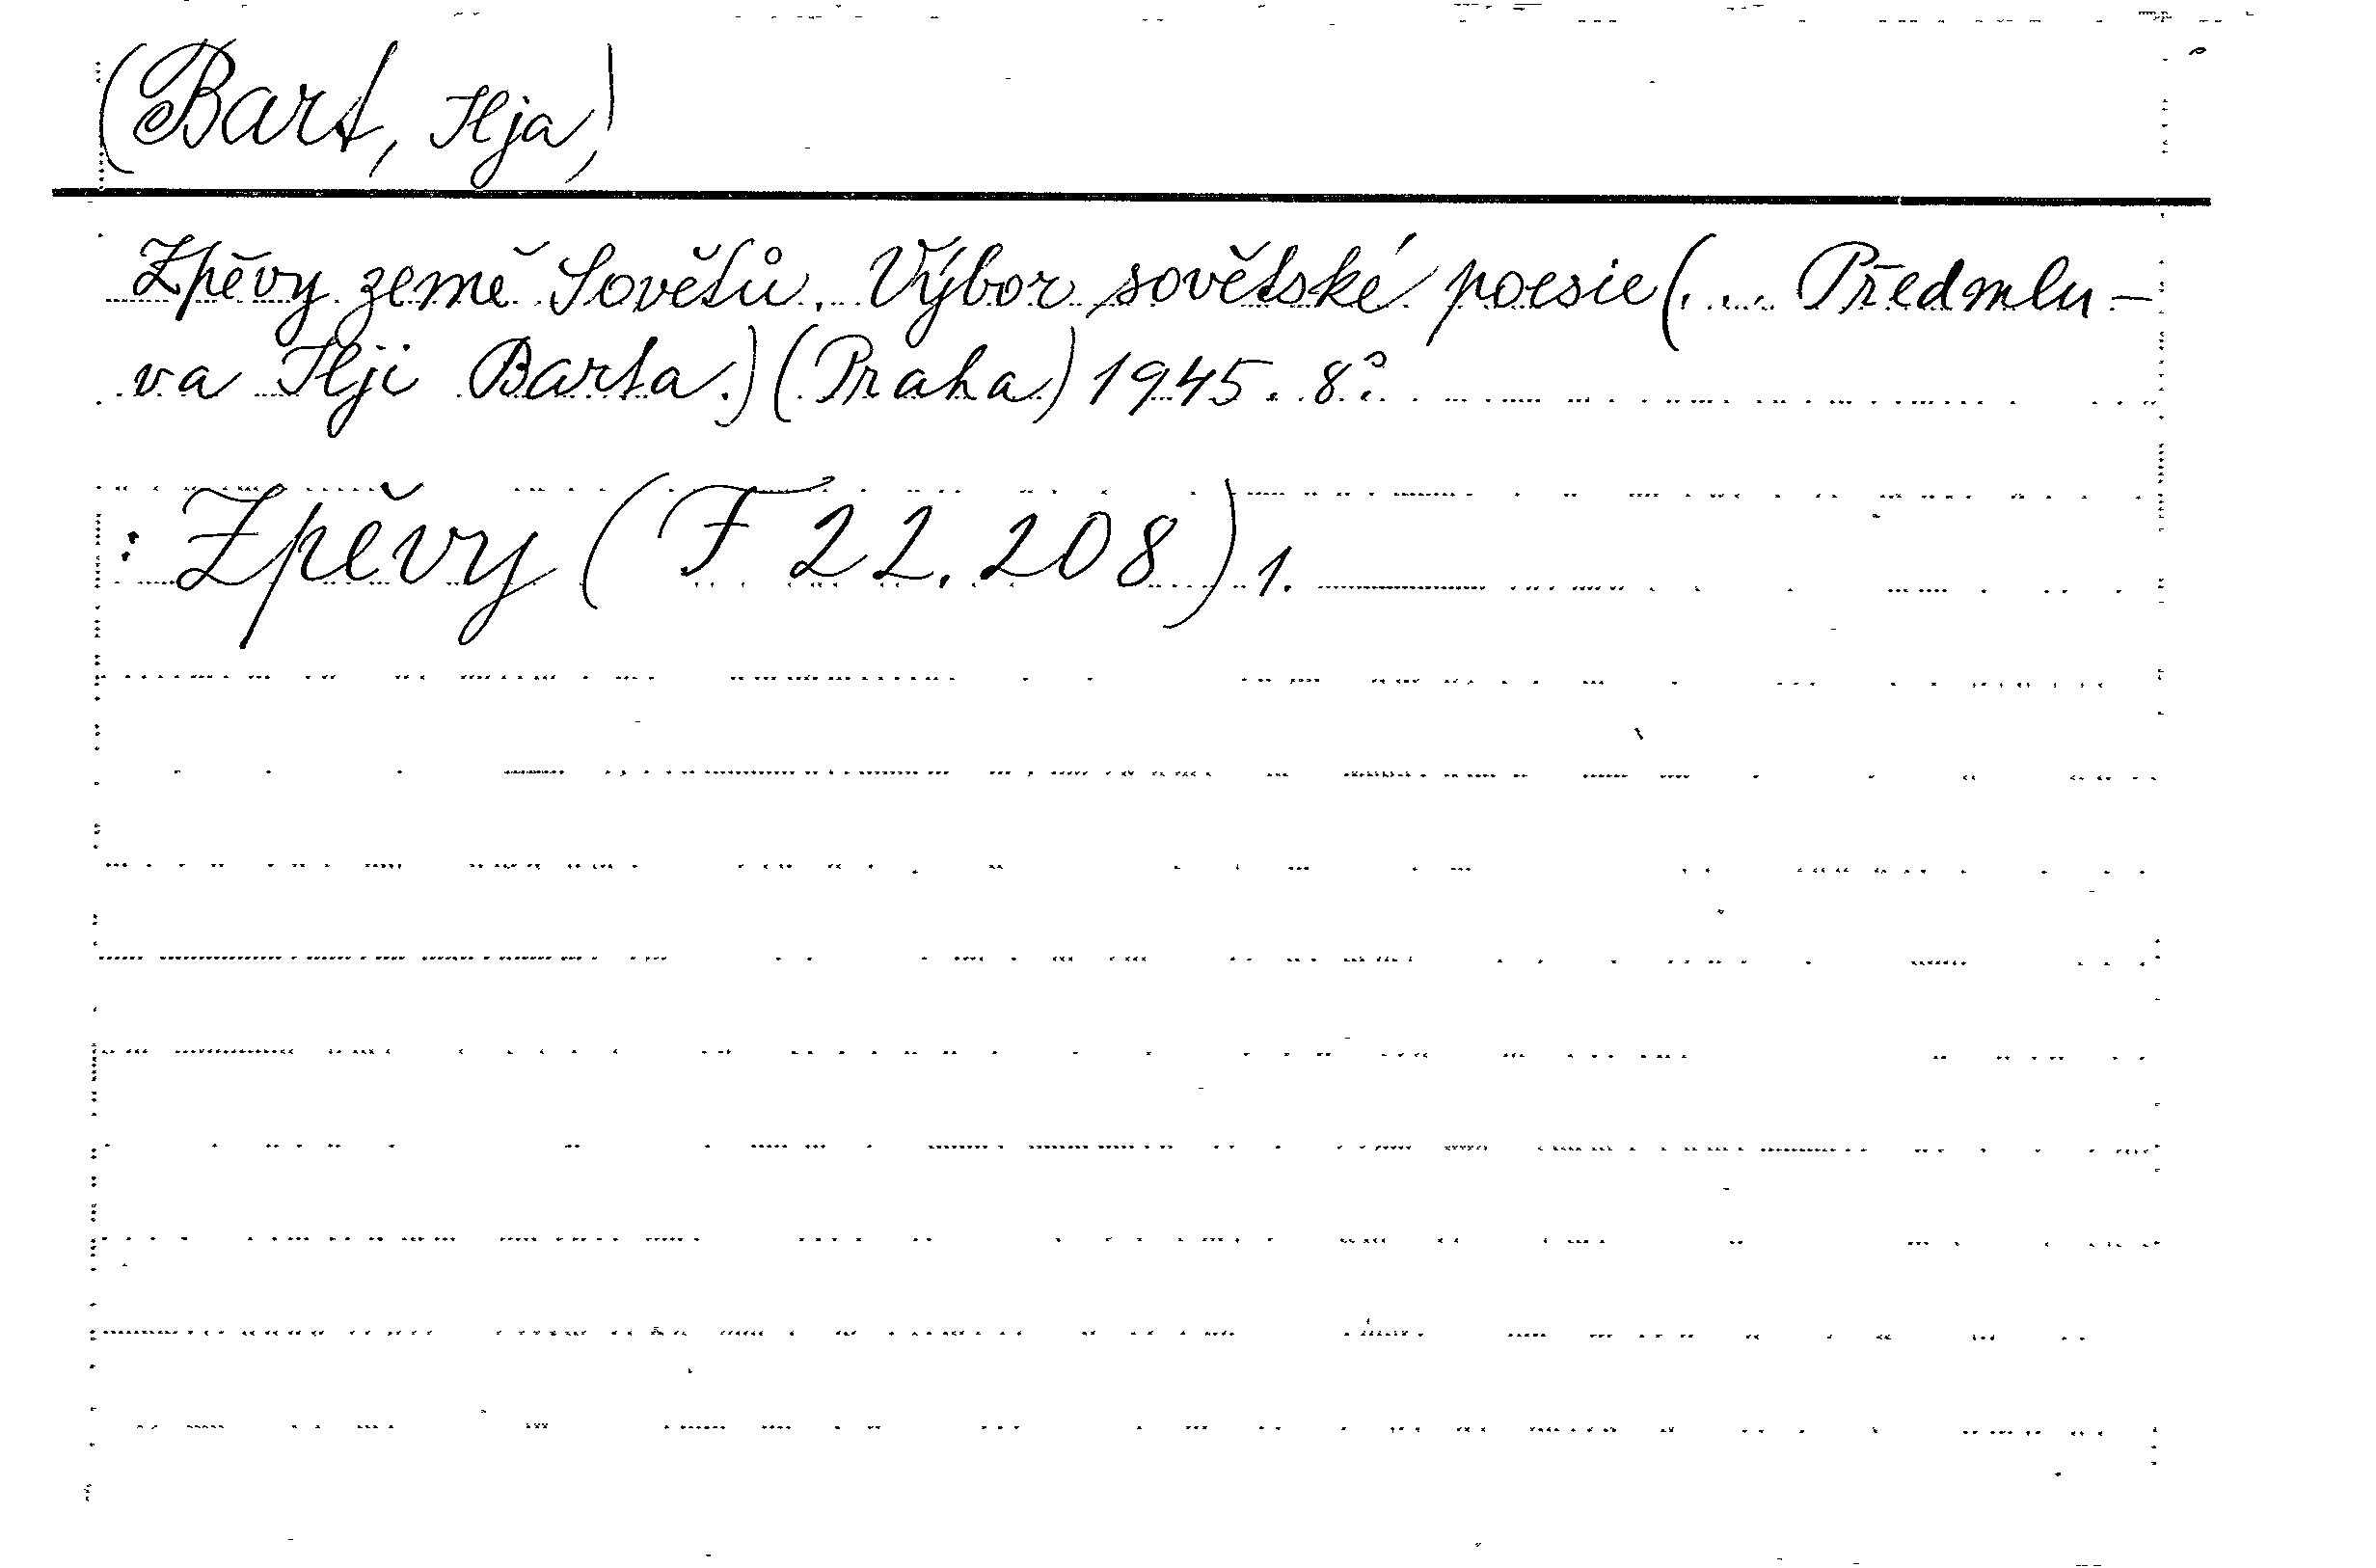 (Bart, Ilja)
Zpěvy země Sovětů. Výbor sovětské poesie (... Předmlu-
va Ilji Barta.) (Praha) 1945. 8°.
: Zpěvy (F 22.208) 1.